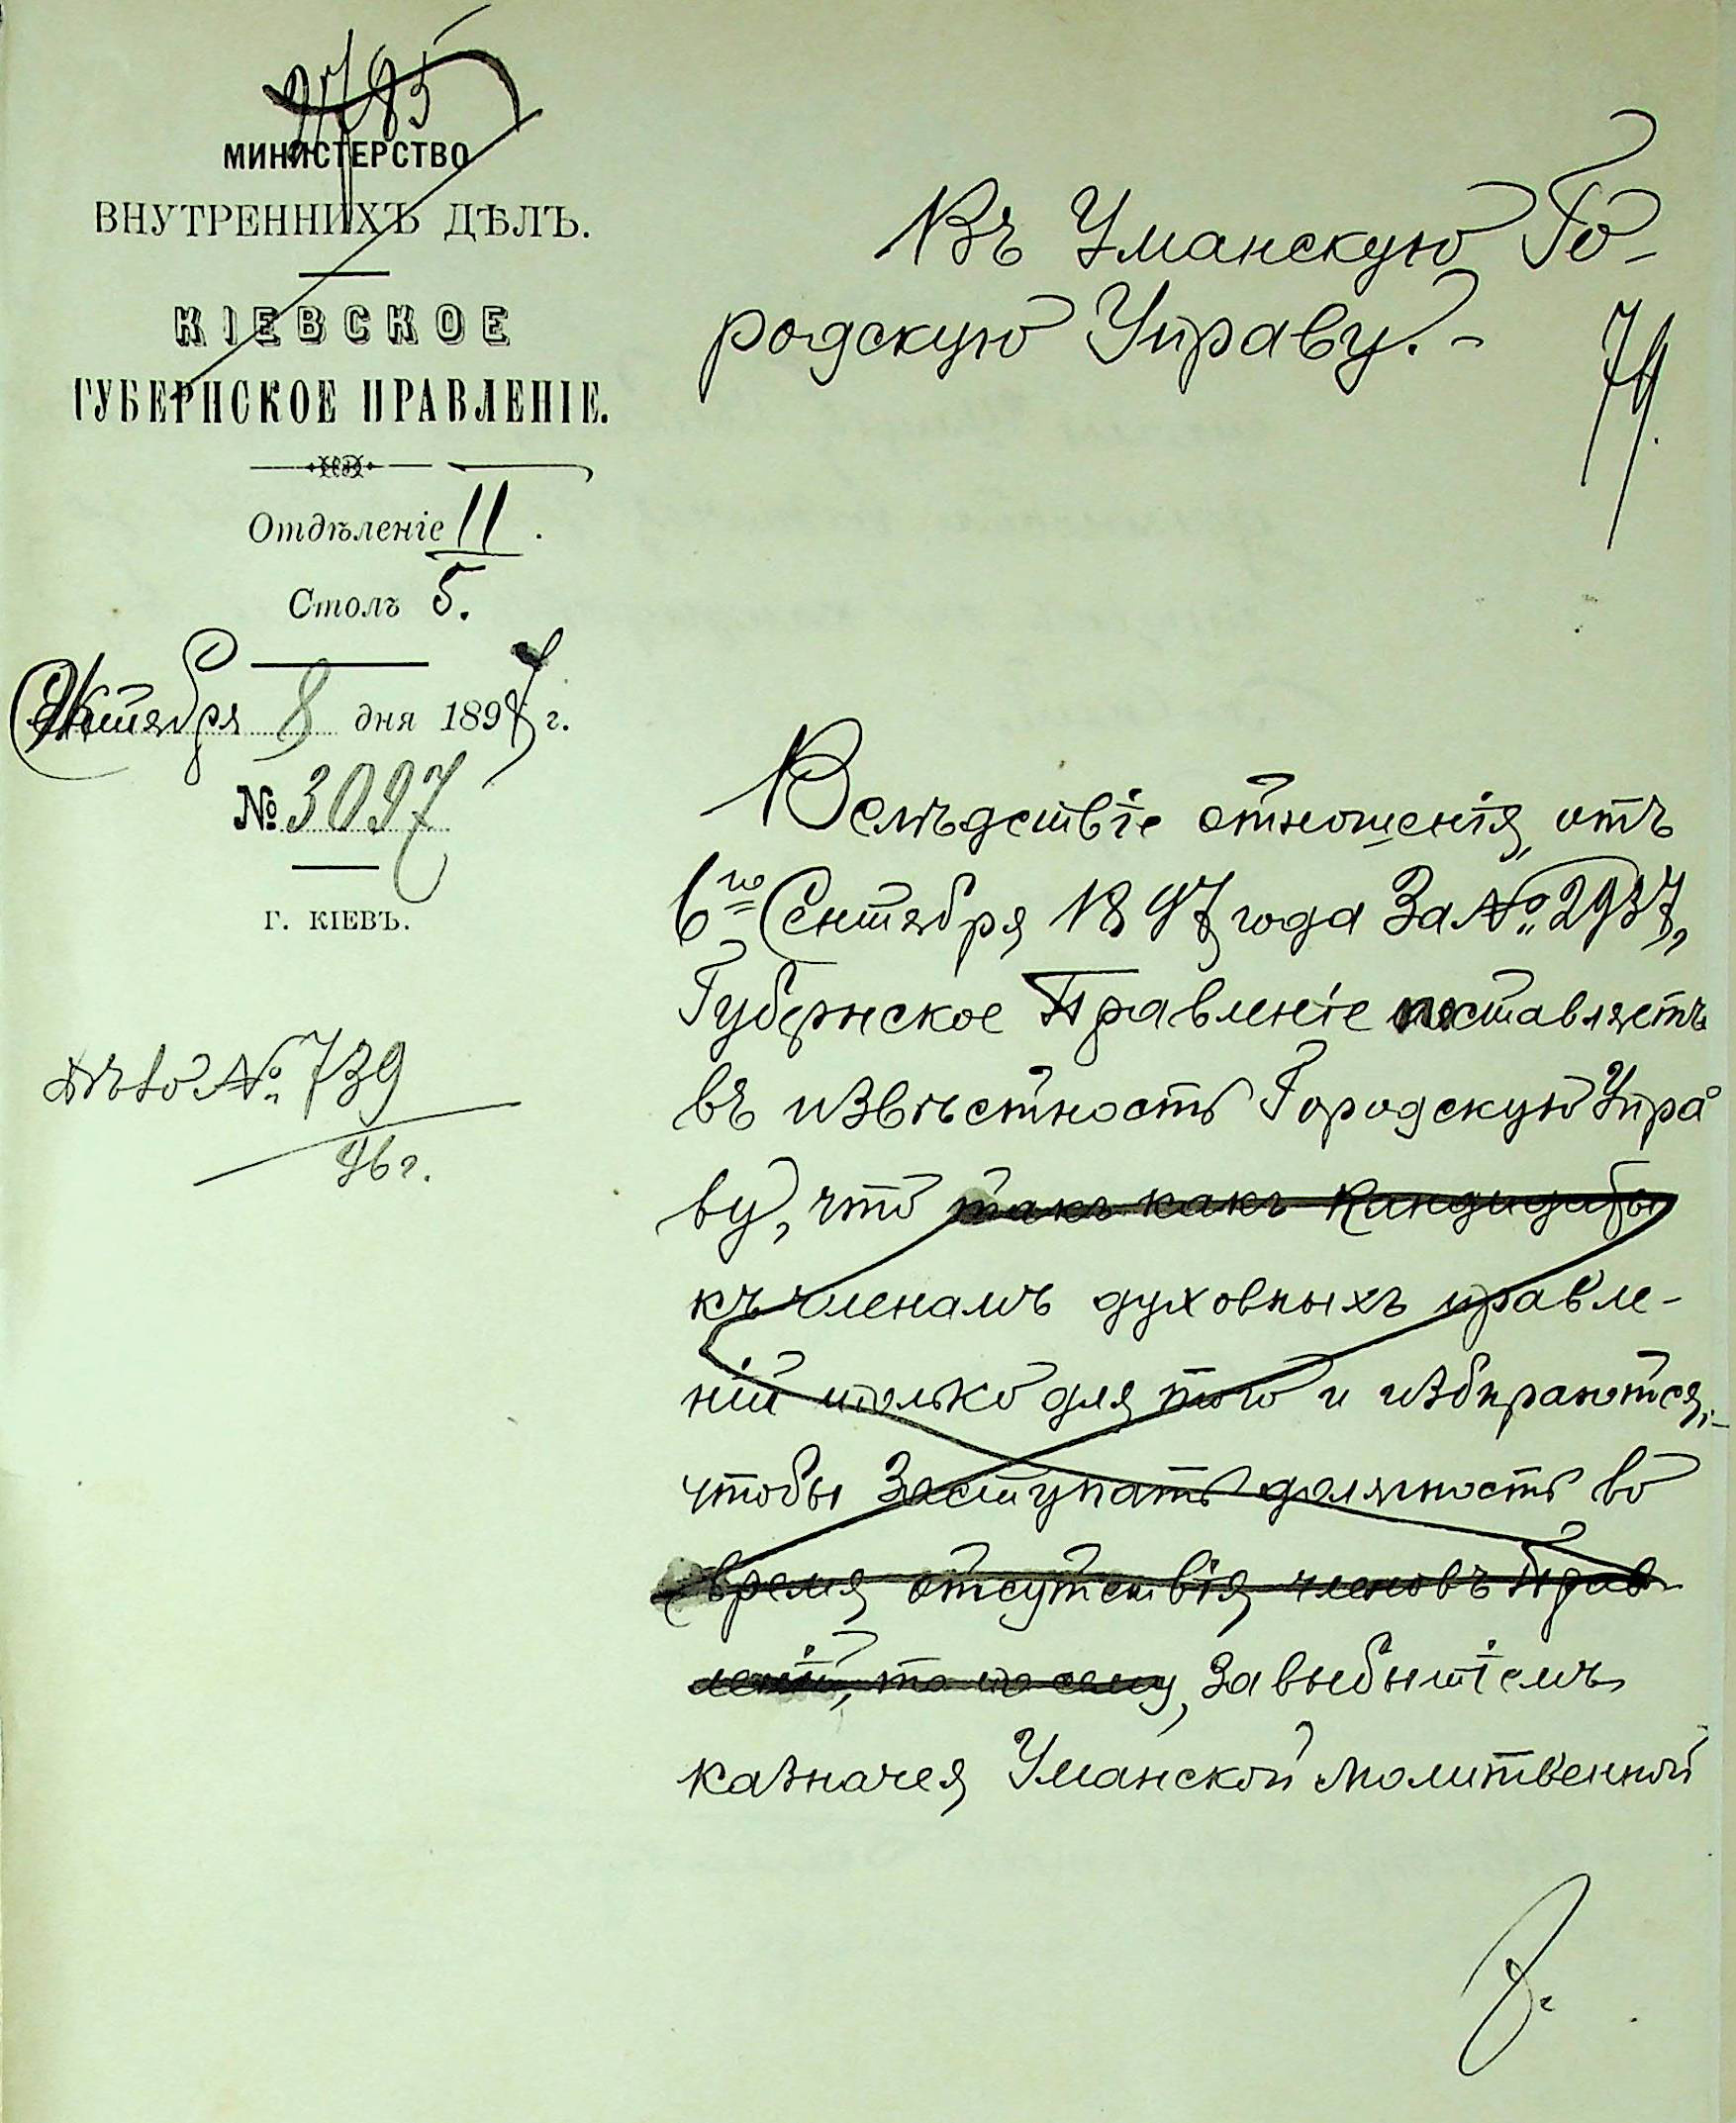 МИНИСТЕРСТВО
ВНУТРЕННИХЪ ДѢЛЪ.
КІЕВСКОЕ
ГУБЕРНСКОЕ ПРАВЛЕНІЕ.
Отдѣленіе II.
Столъ 5.
Октября 8 дня 1897 г.
№ 3097
Г. КІЕВЪ.
Дѣло № 739
96 г.
Въ Уманскую Го-
родскую Управу.-
79.
Вслѣдствіе отношенія, отъ
6го Сентября 1897 года За №. 2937,
Губернское Правленіе поставляетъ
въ извѣстность Городскую Упра
ву, что такъ какъ Кандидаты
къ членамъ духовныхъ правле-
ній только для того и избираются,-
чтобы Заступать должность во
время отсутствія членовъ Прав
леній, то по сему, За выбытіемъ
казначея Уманской молитвенной